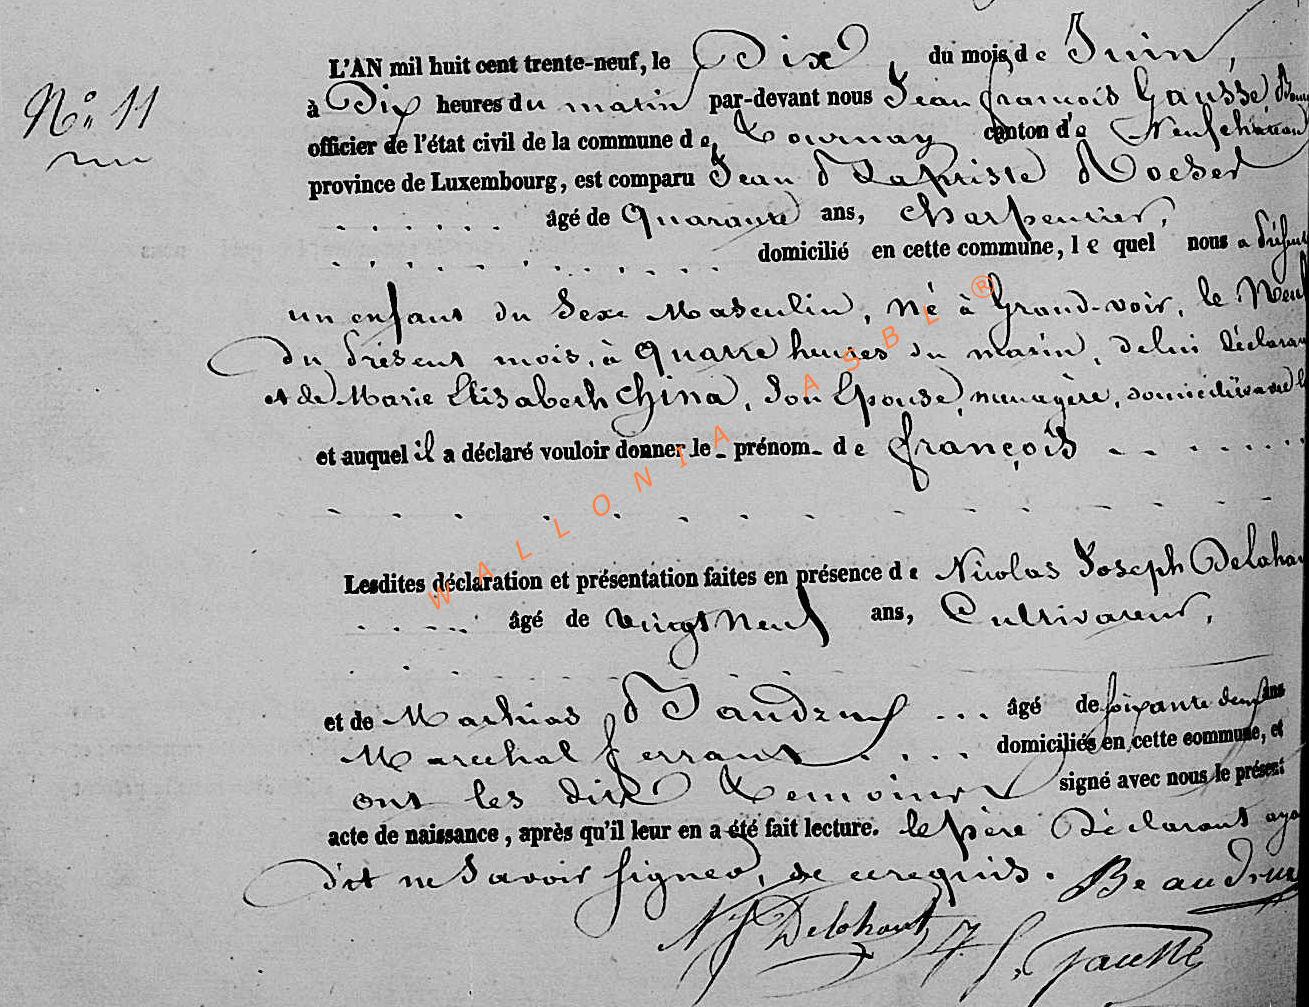 L'AN mil huit cent trente-neuf, le Dix du mois de Juin,
N° 11
à Dix heures du matin par-devant nous Jean françois Gausse,
officier de l'état civil de la commune de Tournay canton de Neufchâteau
province de Luxembourg, est comparu Jean Baptiste Roeser
âgé de Quarante ans, Charpentier,
domicilié en cette commune, le quel nous a
un enfant du Sexe Masculin, né à Grand-voir, le Neuf
du présent mois, à Quatre heures du matin, de lui déclarant
et de Marie Elisabeth China, Son Epouse, menagère,
et auquel il a déclaré vouloir donner le prénom de françois
Lesdites déclaration et présentation faites en présence de Nicolas Joseph
âgé de vingt Neuf ans, Cultivateur,
et de Mathias Baudrux âgé de soixante deux ans
Marechal ferrant domiciliés en cette commune, et
ont les dits temoins signé avec nous le présent
acte de naissance, après qu'il leur en a été fait lecture. le père Déclarant
dit ne Savoir signer, de ce requis. Beaudrux
N J Delohaut J f. Gausse
WALLONIA ASBL ®